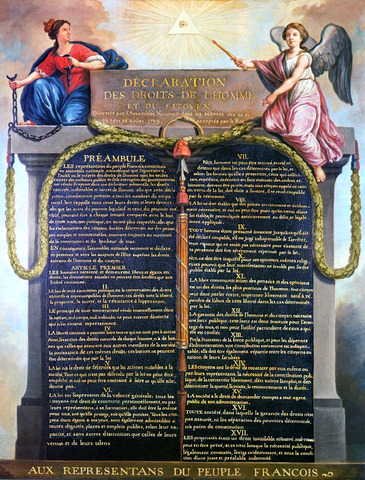 DÉCLARATION
DES DROITS DE L'HOMME
ET DU CITOYEN
Décrétés par l'Assemblée Nationale dans les séances des 20, 21
acceptés par le Roi
PRÉAMBULE
LES représentans du peuple François, constitués
en assemblée nationale, considérant que l'ignorance,
l'oubli ou le mépris des droits de l'homme sont les seules
causes des malheurs publics et de la corruption des gouvernemens
ont résolu d'exposer dans une déclaration solemnelle, les droits
naturels, inaliénables et sacrés de l'homme; afin que cette décla-
ration, constamment présente à tous les membres du corps
social, leur rappelle sans cesse leurs droits et leurs devoirs; afin
que les actes du pouvoir législatif et ceux du pouvoir exé-
cutif, pouvant être à chaque instant comparés avec le but
de toute institution politique, en soient plus respectés; afin que
les réclamations des citoyens, fondées désormais sur des princi-
pes simples et incontestables, tournent toujours au maintien
de la constitution et du bonheur de tous.
EN conséquence, l'assemblée nationale reconnoit et déclare,
en présence et sous les auspices de l'Être suprême les droits
suivans de l'homme et du citoyen.
ARTICLE PREMIER.
LES hommes naissent et demeurent libres et égaux en
droits. les distinctions sociales ne peuvent être fondées que sur
l'utilité commune.
II.
LE but de toute association politique est la conservation des droits
naturels et imprescriptibles de l'homme; ces droits sont la liberté,
la propriété, la sureté, et la résistance à l'oppression.
III.
LE principe de toute souveraineté réside essentiellement dans
la nation, nul corps, nul individu ne peut exercer d'autorité
qui n'en émane expressément.
IV.
LA liberté consiste à pouvoir faire tout ce qui ne nuit pas à autrui
Ainsi, l'exercice des droits naturels de chaque homme, n'a de bor-
nes que celles qui assurent aux autres membres de la société
la jouissance de ces mêmes droits; ces bornes ne peuvent
être déterminées que par la loi.
V.
LA loi n'a le droit de défendre que les actions nuisibles à la
société. Tout ce qui n'est pas défendu par la loi ne peut être
empêché, et nul ne peut être contraint à faire ce qu'elle n'or-
donne pas.
VI.
LA loi est l'expression de la volonté générale; tous les
citoyens ont droit de concourir personnellement, ou par
leurs représentans, à sa formation; elle doit être la même
pour tous, soit qu'elle protege, soit qu'elle punisse. Tous les cito-
yens étant égaux à ses yeux, sont également admissibles à
toutes dignités, places et emplois publics, selon leur ca-
pacité, et sans autres distinctions que celles de leurs
vertus et de leurs talens.
VII.
NUL homme ne peut être accusé, arrêté, ni
détenu que dans les cas déterminés par la loi, et
selon les formes qu'elle a prescrites, ceux qui sollici-
tent, expédient, exécutent ou font exécuter des ordres ar-
bitraires, doivent être punis; mais tout citoyen appelé ou saisi
en vertu de la loi, doit obéir à l'instant, il se rend coupable
par la résistance.
VIII.
LA loi ne doit établir que des peines strictement et évidem-
ment nécessaires, et nul ne peut être puni qu'en vertu d'une
loi établie et promulguée antérieurement au délit, et légale-
ment appliquée.
IX.
TOUT homme étant présumé innocent jusqu'à ce qu'il ait
été déclaré coupable, s'il est jugé indispensable de l'arrêter,
toute rigueur qui ne seroit pas nécessaire pour s'assurer de
sa personne doit être sévèrement réprimée par la loi.
X.
NUL ne doit être inquiété pour ses opinions, mêmes religi-
euses pourvu que leur manifestation ne trouble pas l'ordre
public établi par la loi.
XI.
LA libre communication des pensées et des opinions est
un des droits les plus précieux de l'homme; tout citoyen
peut donc parler, écrire, imprimer librement, sauf à ré-
pondre de l'abus de cette liberté dans les cas déterminés
par la loi.
XII.
LA garantie des droits de l'homme et du citoyen nécessite
une force publique; cette force est donc instituée pour l'avan-
tage de tous, et non pour l'utilité particuliere de ceux à qui
elle est confiée.
XIII.
POUR l'entretien de la force publique, et pour les dépenses
d'administration, une contribution commune est indispen-
sable; elle doit être également répartie entre les citoyens en
raison de leurs facultés.
XIV.
LES citoyens ont le droit de constater par eux même ou
par leurs représentans, la nécessité de la contribution publi-
que, de la consentir librement, d'en suivre l'emploi, et d'en
déterminer la quotité, l'assiette, le recouvrement et la durée.
XV.
LA société a le droit de demander compte à tout agent
public de son administration.
XVI.
TOUTE société, dans laquelle la garantie des droits n'est
pas assurée, ni les séparation des pouvoirs déterminée,
n'a point de constitution.
XVII.
LES propriétés étant un droit inviolable et sacré, nul ne
peut en être privé, si ce n'est lorsque la nécessité publique,
légalement constatée, l'exige évidemment, et sous la condition
d'une juste et préalable indemnité.
AUX REPRESENTANS DU PEUPLE FRANCOIS